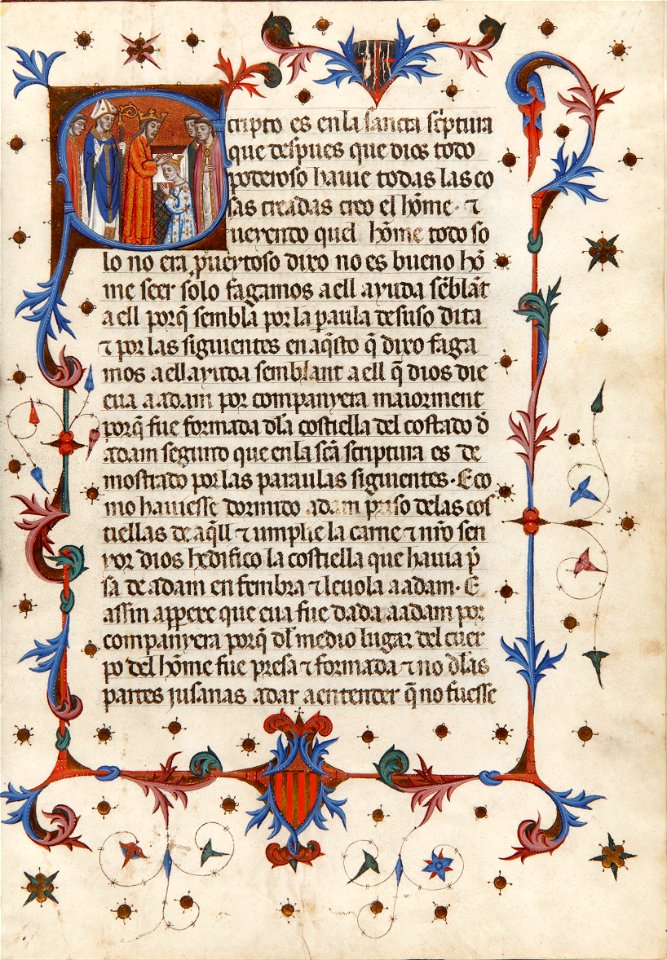 Scripto es en la sancta sc̃ptura
que despues que dios todo
poderoso hauie todas las co
sas creadas creo el hõme · ⁊
ueyendo quel hõme todo so
lo no era puertoso dixo no es bueno hõ
me seer solo fagamos a ell ayuda sẽblãt
a ell porq̃ sembla por la paula desuso dita
⁊ por las siguientes en aq̃sto q̃ dixo faga
mos a ell ayuda semblant a ell q̃ dios die
eua a adam por companyera maiorment
porq̃ fue formada dla costiella del costado d̃
adam seguito que en la sc̃a scriptura es de
mostrado por las paraulas siguientes · E co
mo hauiesse dormido adam priso delas cos
tiellas de aq̃ll ⁊ umplie la carne ⁊ nr̃o sen
yor dios hedifico la costiella que hauia p̃
sa de adam en fembra ⁊ leuola a adam · E
assin appere que eua fue dada a adam por
companyera porq̃ dl medio lugar del cuer
po del hõme fue presa ⁊ formada ⁊ no dlas
partes jusanas a dar a entender q̃ no fuesse